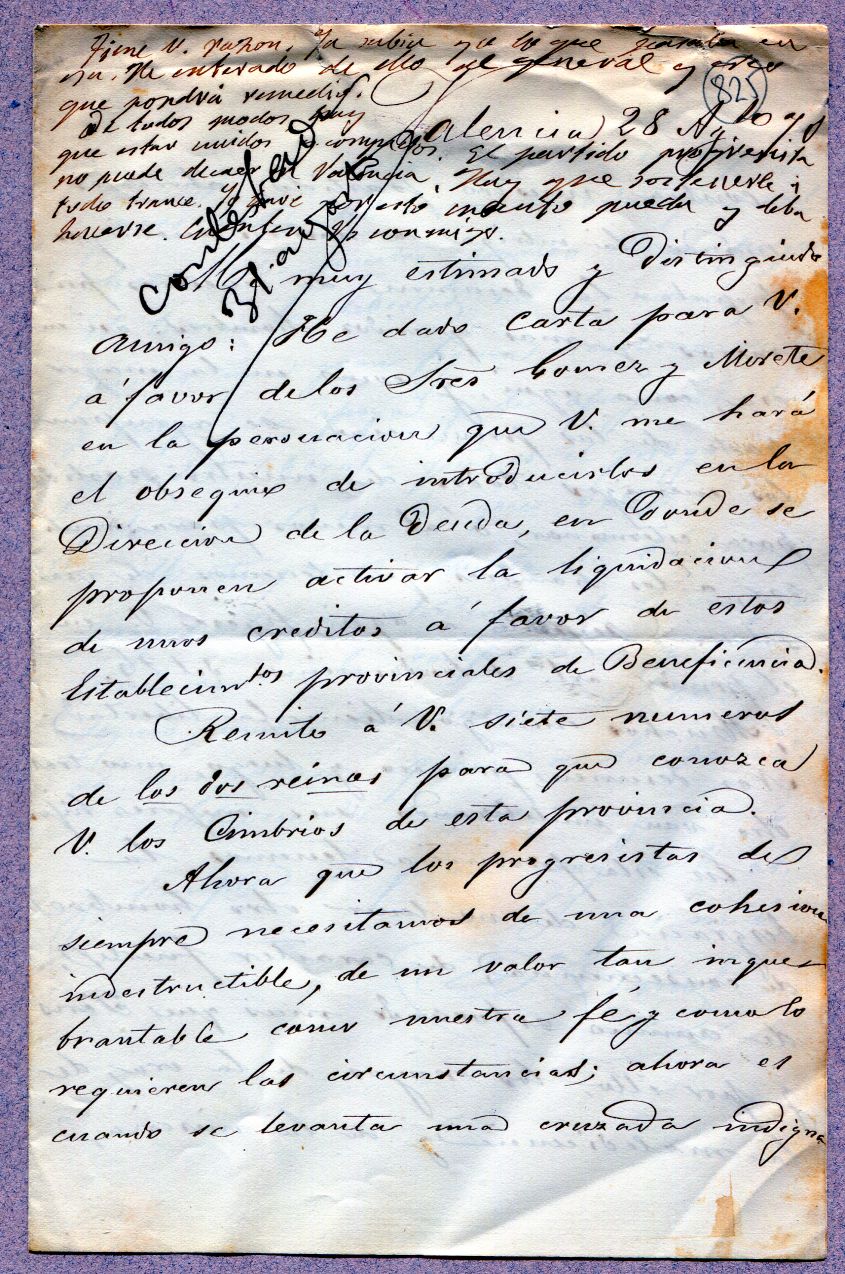 Tiene V. razon. Ya sabia yo lo que pasaba en
esa. He enterado de ello al general y creo
que pondrá remedio.
De todos modos hay
que estar unidos y compactos. El partido progresista
no puede decaer en Valencia. Hay que sostenerle á
todo trance. Yo haré por esto cuanto pueda y deba
hacerse. Cuente V. conmigo.
825
Valencia 28 Agto
contestada
31 agosto
muy estimado y distinguido
amigo: He dado carta para V.
á favor de los Sres Gomez y Morete
en la persuacion que V. me hará
el obsequio de introducirlos en la
Direccion de la Deuda, en donde se
proponen activar la liquidacion
de unos creditos á favor de estos
Establecimtos provinciales de Beneficencia.
Remito á V. siete numeros
de los dos reinos para que conozca
V. los Cimbrios de esta provincia.
Ahora que los progresistas de
siempre necesitamos de una cohesion
indestructible, de un valor tan inque-
brantable como nuestra fé y como lo
requieren las circunstancias; ahora es
cuando se levanta una cruzada indigna